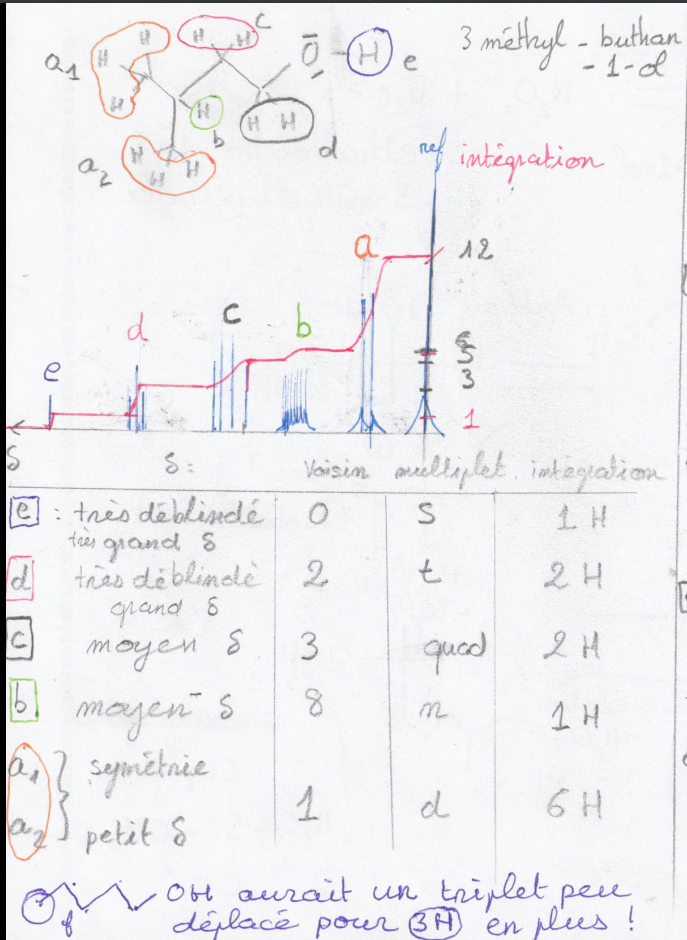 c
H H
H H
a1
H
H
b
H
H H
d
Ō - H e
H H
a2
H
3 méthyl - buthan
- 1 - ol
ref intégration
a
12
d
c
b
e
5
3
1
δ
δ: Voisin multiplet intégration
e : très déblindé 0 S 1 H
très grand δ
d très déblindé 2 t 2 H
grand δ
c moyen δ 3 quad 2 H
b moyen⁻ δ 8 n 1 H
a1 } symétrie 1 d 6 H
a2 petit δ
f OH aurait un triplet peu
déplacé pour 3H en plus !